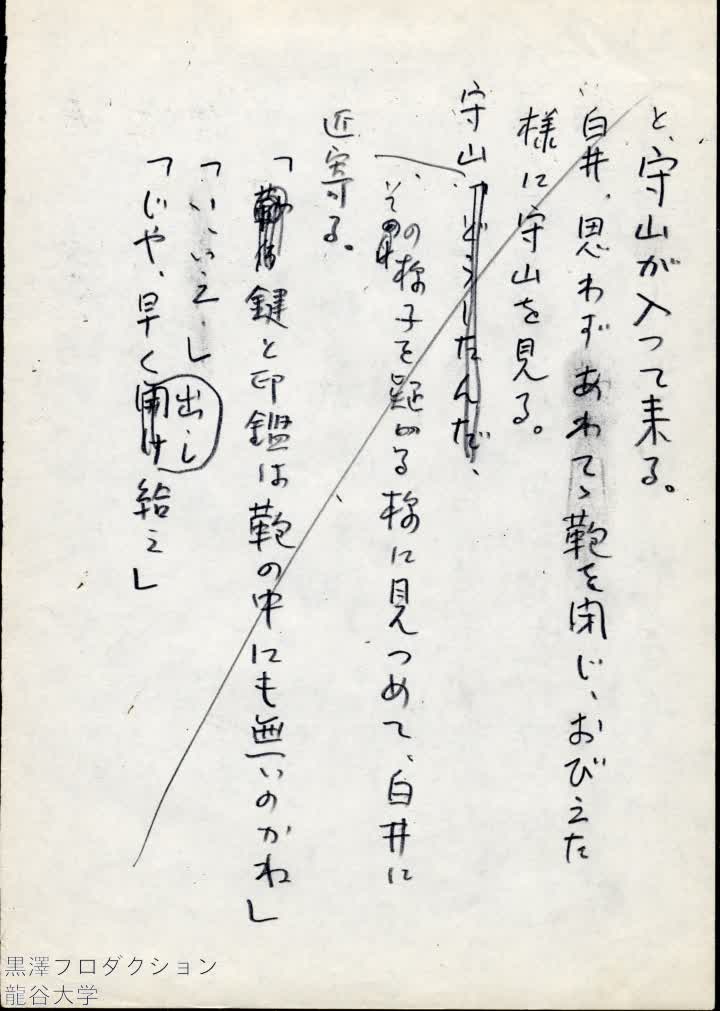 と、守山が入って来る。
白井、思わずあわてゝ鞄を閉じ、おびえた
様に守山を見る。
守山「どうしたんだ、
、その様子を疑ぐる様に見つめて、白井に
近寄る。
「鍵と印鑑は鞄の中にも無いのかね」
「いゝえ」
「じや、早く出し給え」
黒澤プロダクション
龍谷大学